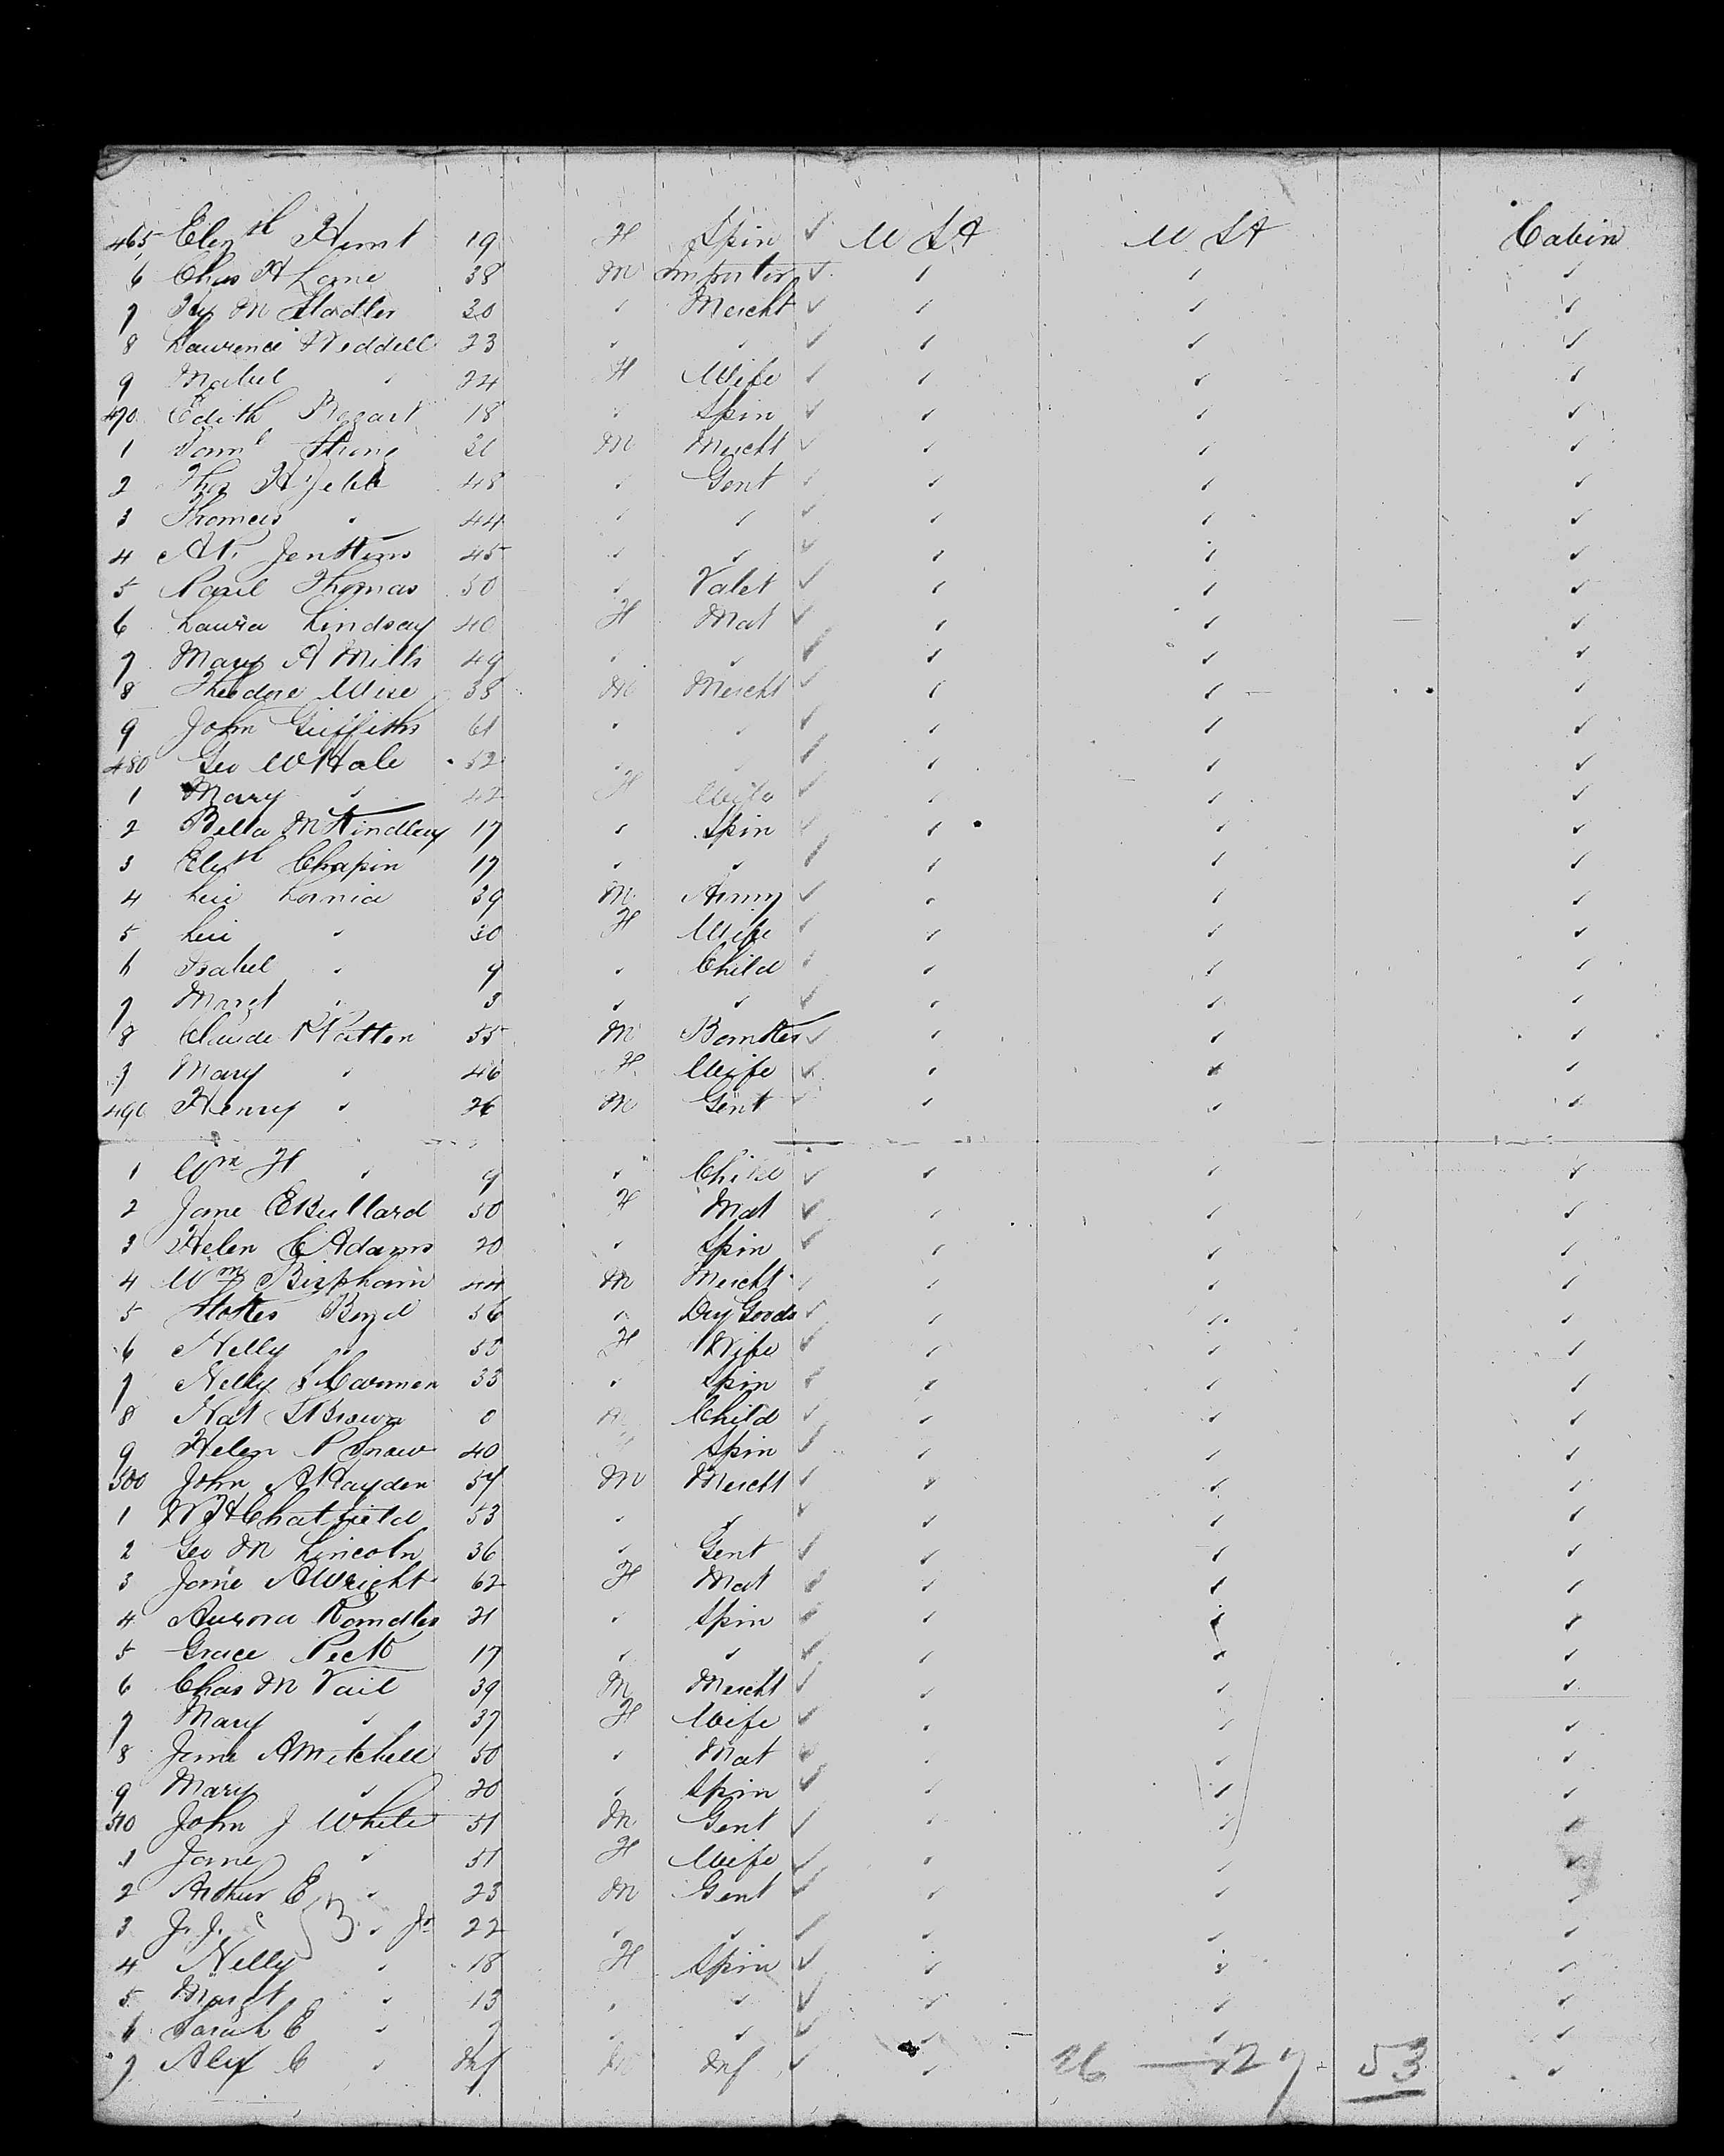 465 Eliz th Hunt 19 F Spin ✓ U S A U S A Cabin
6 Chas H Lane 38 M Importer ✓ ✓ ✓ ✓
7 Hy M Stadler 20 ✓ Mercht ✓ ✓ ✓ ✓
8 Laurence Weddell 23 ✓ ✓ ✓ ✓ ✓ ✓
9 Mabel ✓ 24 F Wife ✓ ✓ ✓ ✓
470 Edith Bogart 18 ✓ Spin ✓ ✓ ✓ ✓
1 Saml Strong M Mercht ✓ ✓ ✓ ✓
2 Thos H 48 ✓ Gent ✓ ✓ ✓ ✓
3 Thomas ✓ 44 ✓ ✓ ✓ ✓ ✓ ✓
4 Jenkins 45 ✓ ✓ ✓ ✓ ✓ ✓
5 Paul Thomas 30 ✓ Valet ✓ ✓ ✓ ✓
6 Laura Lindsay 40 F Mat ✓ ✓ ✓ ✓
7 Mary A Mills 49 ✓ ✓ ✓ ✓ ✓ ✓
8 Theodore Wise 38 M Mercht ✓ ✓ ✓ ✓
9 John Griffiths 61 ✓ ✓ ✓ ✓ ✓ ✓
480 Geo W Hale 52 ✓ ✓ ✓ ✓ ✓ ✓
1 Mary ✓ 42 F Wife ✓ ✓ ✓ ✓
2 Bella McKindley 17 ✓ Spin ✓ ✓ ✓ ✓
3 Eliz th Chapin 17 ✓ ✓ ✓ ✓ ✓ ✓
4 39 M Army ✓ ✓ ✓ ✓
5 ✓ 30 F Wife ✓ ✓ ✓ ✓
6 Isabel ✓ 9 ✓ Child ✓ ✓ ✓ ✓
7 Margt ✓ 3 ✓ ✓ ✓ ✓ ✓ ✓
8 Claude Patten 55 M Banker ✓ ✓ ✓ ✓
9 Mary ✓ 46 F Wife ✓ ✓ ✓ ✓
490 Henry ✓ 26 M Gent ✓ ✓ ✓ ✓
1 Wm H ✓ 9 ✓ Child ✓ ✓ ✓ ✓
2 Jane E Bullard 50 F Mat ✓ ✓ ✓ ✓
3 Helen C Adams 20 ✓ Spin ✓ ✓ ✓ ✓
4 Wm Bispham 44 M Mercht ✓ ✓ ✓ ✓
5 Stokes Boyd 56 ✓ Dry Goods ✓ ✓ ✓ ✓
6 Nelly ✓ 50 F Wife ✓ ✓ ✓ ✓
7 Nelly S Carman 33 ✓ Spin ✓ ✓ ✓ ✓
8 Nat Brown Child ✓ ✓ ✓ ✓
9 Helen P Snow 40 F Spin ✓ ✓ ✓ ✓
500 John A Hayden 57 M Mercht ✓ ✓ ✓ ✓
1 W H Chatfield 53 ✓ ✓ ✓ ✓ ✓ ✓
2 Geo M Lincoln 36 ✓ Gent ✓ ✓ ✓ ✓
3 Jane A Wright 62 F Mat ✓ ✓ ✓ ✓
4 Aurora 21 ✓ Spin ✓ ✓ ✓ ✓
5 Grace Peck 17 ✓ ✓ ✓ ✓ ✓ ✓
6 Chas M Vail 39 M Mercht ✓ ✓ ✓ ✓
7 Mary ✓ 37 F Wife ✓ ✓ ✓ ✓
8 Jane A Mitchell 50 ✓ Mat ✓ ✓ ✓ ✓
9 Mary ✓ 20 ✓ Spin ✓ ✓ ✓ ✓
510 John J White 51 M Gent ✓ ✓ ✓ ✓
1 Jane ✓ 51 F Wife ✓ ✓ ✓ ✓
2 Arthur E ✓ 23 M Gent ✓ ✓ ✓ ✓
3 J. J. ✓ Jr 22 ✓ ✓ ✓ ✓ ✓ ✓
4 Nelly ✓ 18 F Spin ✓ ✓ ✓ ✓
5 Margt ✓ 13 ✓ ✓ ✓ ✓ ✓ ✓
6 Sarah E ✓ ✓ ✓ ✓ ✓ ✓ ✓
7 Alex C ✓ Inf M Inf ✓ ✓ ✓ ✓
26 — 27 53